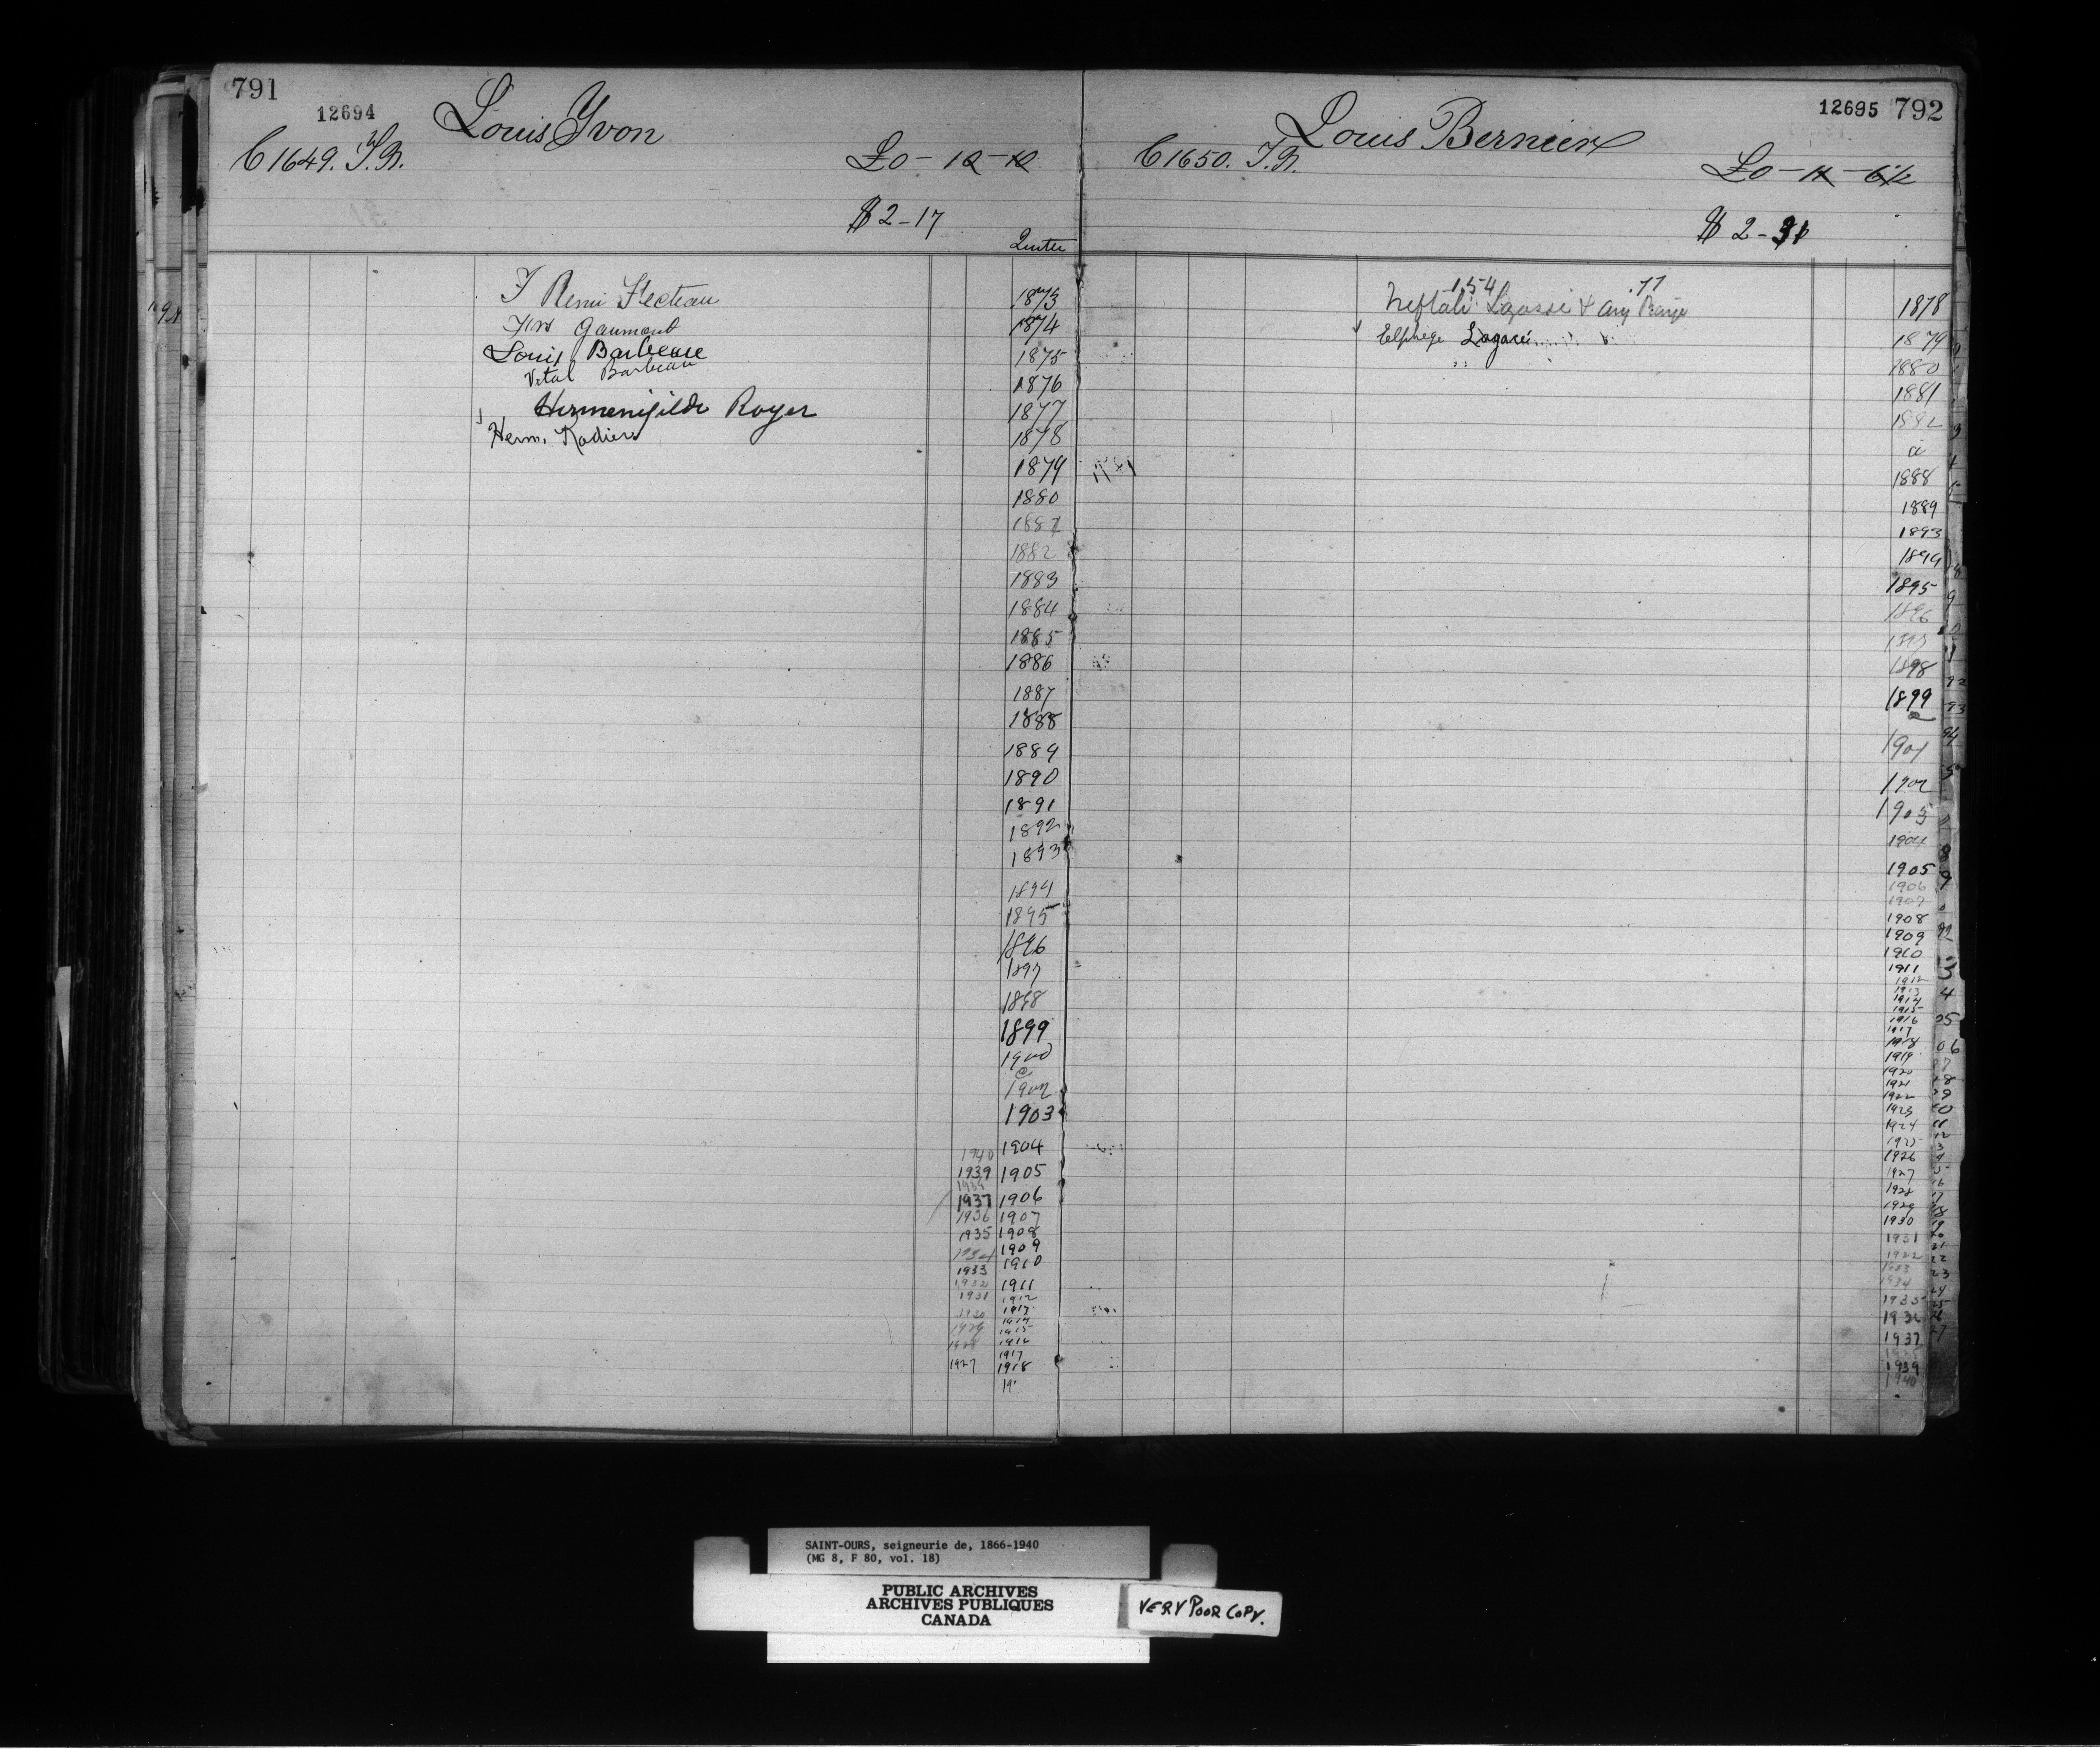 791
12694
Louis Yvon
C 1649. T.N.
£0-10-10
$2-17
Remi Fecteau
Gaumont
Louis Barbeau
Vital Barbeau
Hermenigilde Royer
Herm.
1873
1874
1875
1876
1877
1878
1879
1880
1882
1883
1884
1885
1886
1887
1888
1889
1890
1891
1892
1893
1894
1895
1896
1897
1898
1899
1900
1902
1903
1940 1904
1939 1905
1937 1906
1936 1907
1935 1908
1934 1909
1933 1910
1932 1911
1931 1912
1930
1929
1928
1917
1927 1918
12695 792
Louis Bernier
C 1650. T.N.
£0-11-6½
$2-31
154 .77
Neftali Lagassé &
Elphège Lagacé
1878
1879
1880
1881
1882
1888
1889
1893
1894
1895
1896
1897
1898
1899
1901
1902
1903
1904
1905
1906
1907
1908
1909
1910
1911
1912
1913
1914
1915
1916
1917
1918
1919
1920
1921
1922
1923
1924
1925
1926
1927
1928
1929
1930
1931
1934
1935
1936
1937
1939
1940
SAINT-OURS, seigneurie de, 1866-1940
(MG 8, F 80, vol. 18)
PUBLIC ARCHIVES
ARCHIVES PUBLIQUES
CANADA
VERY POOR COPY.